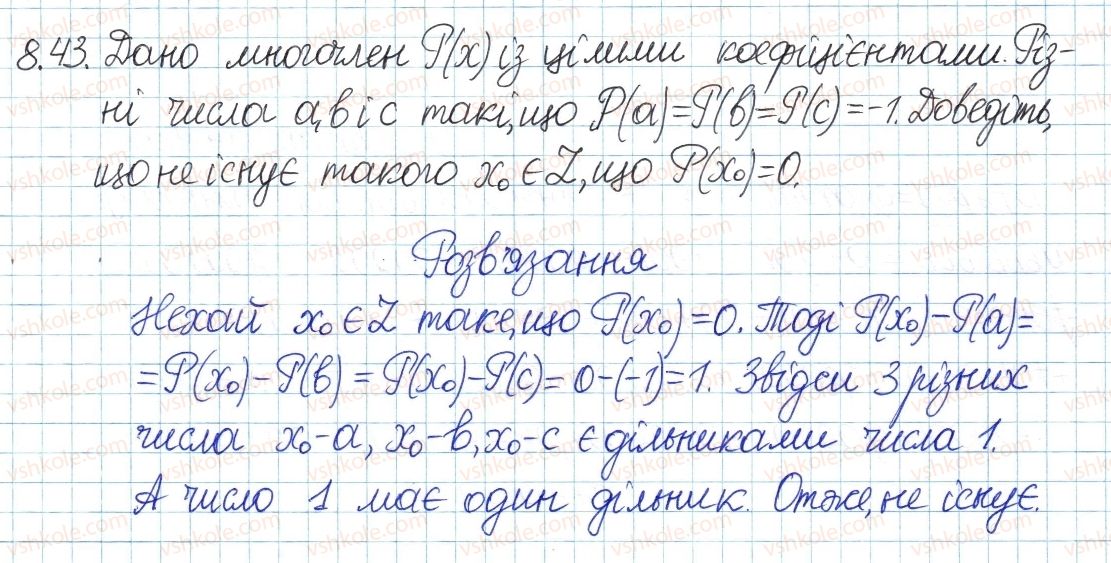 8.43. Дано многочлен P(x) із цілими коефіцієнтами. Різ-
ні числа a, b і c такі, що P(a)=P(b)=P(c)=-1. Доведіть,
що не існує такого x₀ ∈ Z, що P(x₀)=0.
Розв'язання
Нехай x₀ ∈ Z таке, що P(x₀)=0. Тоді P(x₀)-P(a)=
=P(x₀)-P(b)=P(x₀)-P(c)=0-(-1)=1. Звідси 3 різних
числа x₀-a, x₀-b, x₀-c є дільниками числа 1.
А число 1 має один дільник. Отже, не існує.